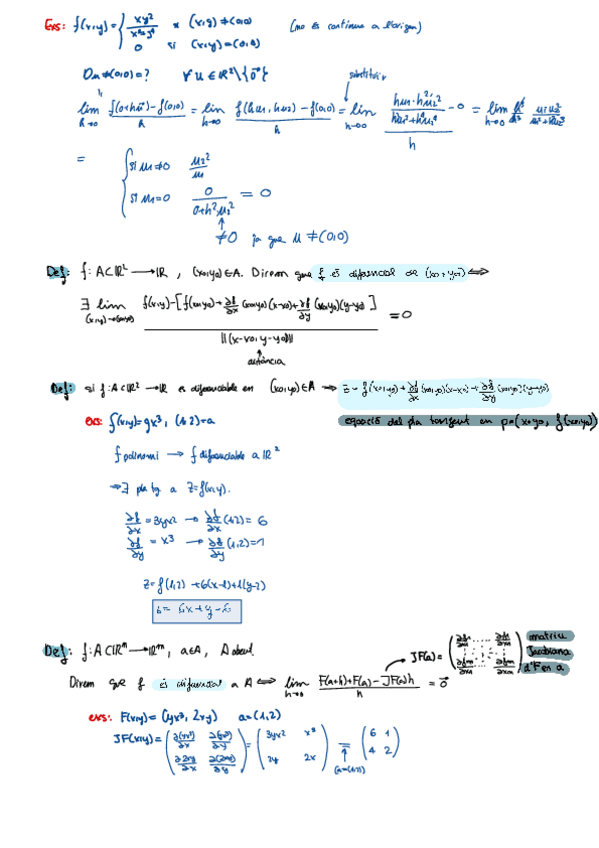 Exs: f(x,y)= { xy²/x²+y⁴ si (x,y)≠(0,0) (no és contínua a l'origen)
0 si (x,y)=(0,0)
Du f(0,0)=? ∀ u ∈ ℝ²\{0⃗}
substituir
lim h→0 f(0+hu)-f(0,0) / h = lim h→0 f(hu1, hu2) - f(0,0) / h = lim h→0 (hu1·h²u2² / h²u1²+h⁴u2⁴ - 0) / h = lim h→0 h³/h³ u1u2²/u1²+h²u2⁴
= { si u1≠0 u2²/u1
si u1=0 0/0+h²u2⁴ = 0
≠0 ja que u≠(0,0)
Def: f: A⊂ℝ² → ℝ, (x0,y0)∈A. Direm que f és diferenciable en (x0,y0) ⟺
∃ lim (x,y)→(x0,y0) f(x,y)-[f(x0,y0)+∂f/∂x(x0,y0)(x-x0)+∂f/∂y(x0,y0)(y-y0)] / ||(x-x0, y-y0)|| = 0
distància
Def: si f: A⊂ℝ² → ℝ és diferenciable en (x0,y0)∈A ⇒ z = f(x0,y0)+∂f/∂x(x0,y0)(x-x0)+∂f/∂y(x0,y0)(y-y0)
exs: f(x,y)=yx³, (1,2)=a equació del pla tangent en p=(x0,y0, f(x0,y0))
f polinomi → f diferenciable a ℝ²
⇒ ∃ pla tg a z=f(x,y).
∂f/∂x = 3yx² → ∂f/∂x(1,2) = 6
∂f/∂y = x³ → ∂f/∂y(1,2)=1
z=f(1,2)+6(x-1)+1(y-2)
6x+y-6
Def: f: A⊂ℝⁿ → ℝᵐ, a∈A, A obert. JF(a)= (∂f1/∂x1 ... ∂f1/∂xn ∂fm/∂x1 ... ∂fm/∂xn) matriu
Jacobiana
d'F en a
Direm que f és diferenciable a A ⟺ lim h→0 F(a+h)+F(a)-JF(a)h / h = 0⃗
exs: F(x,y)=(yx³, 2xy) a=(1,2)
JF(x,y)= (∂(yx³)/∂x ∂(yx³)/∂y ∂2xy/∂x ∂(2xy)/∂y) = (3yx² x³ 2y 2x) = (6 1 4 2)
(a=(1,2))